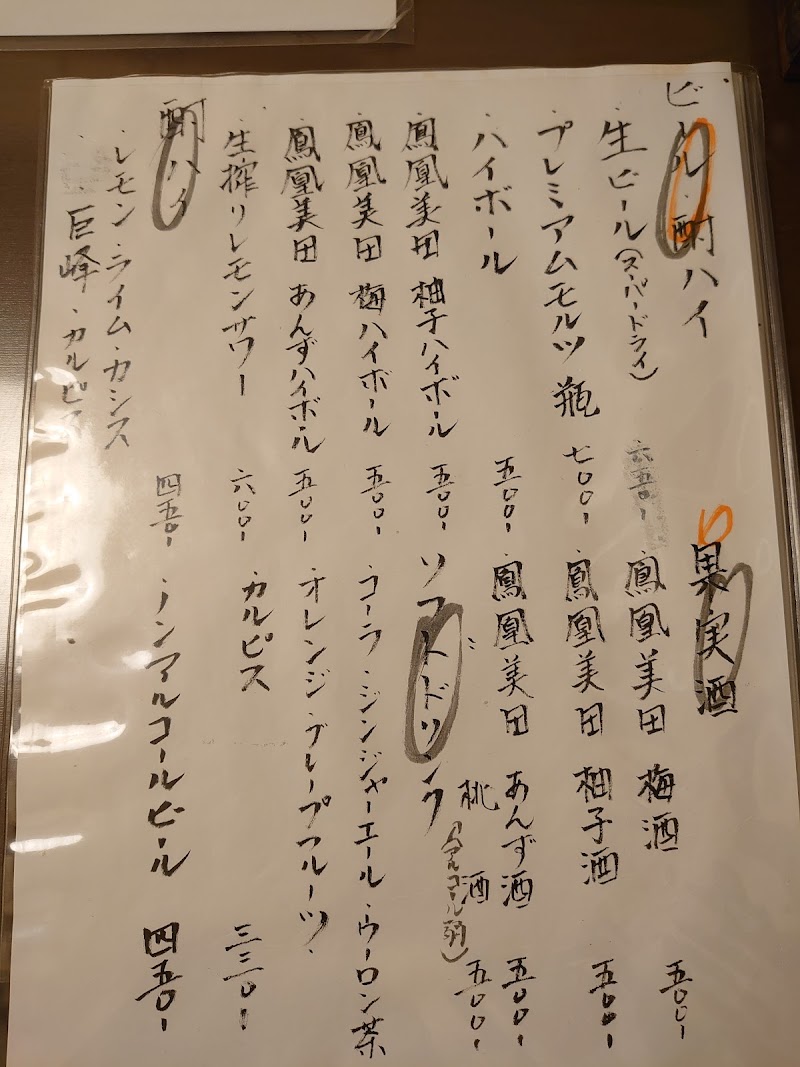 ビール・酎ハイ
・生ビール(スーパードライ) 六五〇-
・プレミアムモルツ 瓶 七〇〇-
・ハイボール 五〇〇-
・鳳凰美田 柚子ハイボール 五〇〇-
・鳳凰美田 梅ハイボール 五〇〇-
・鳳凰美田 あんずハイボール 五〇〇-
・生搾りレモンサワー 六〇〇-
酎ハイ
・レモン・ライム・カシス 四五〇-
巨峰・カルピス
果実酒
・鳳凰美田 梅酒 五〇〇-
・鳳凰美田 柚子酒 五〇〇-
・鳳凰美田 あんず酒 五〇〇-
桃酒 五〇〇-
(アルコール弱)
ソフトドリンク
・コーラ・ジンジャーエール・ウーロン茶
オレンジ・グレープフルーツ・
・カルピス 三三〇-
・ノンアルコールビール 四五〇-